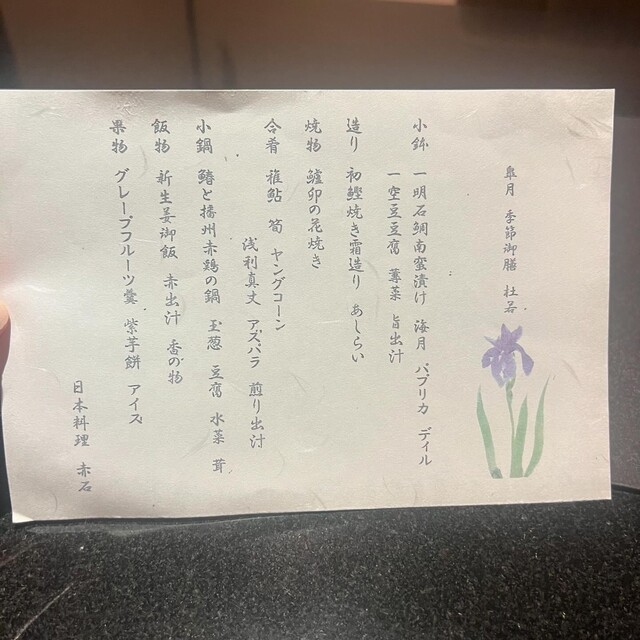 皐月 季節御膳 杜若
小鉢 一明石鯛南蛮漬け 海月 パプリカ ディル
一空豆豆腐 蓴菜 旨出汁
造り 初鰹焼き霜造り あしらい
焼物 鱸卯の花焼き
合肴 稚鮎 筍 ヤングコーン
浅利真丈 アスパラ 煎り出汁
小鍋 鰆と播州赤鶏の鍋 玉葱 豆腐 水菜 茸
飯物 新生姜御飯 赤出汁 香の物
果物 グレープフルーツ羹 紫芋餅 アイス
日本料理 赤石